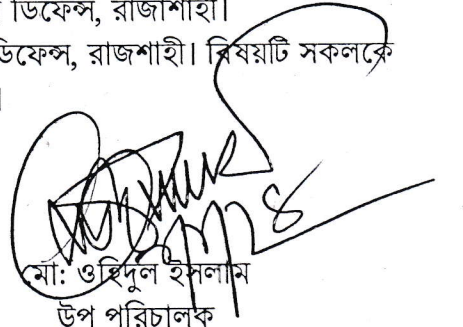 ডিফেন্স, রাজাশাহী।
ডিফেন্স, রাজশাহী। বিষয়টি সকলকে
মো: ওহিদুল ইসলাম
উপ পরিচালক